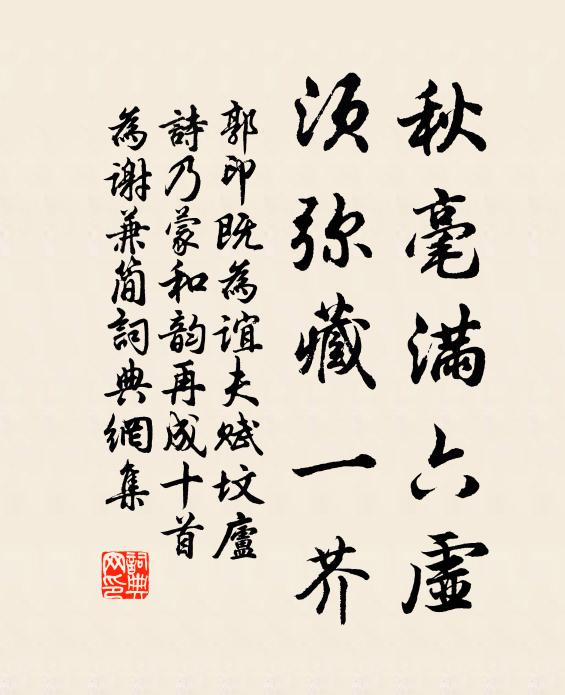 秋毫滿六虛
須弥藏一芥
郭印既為誼夫賦坟廬
詩乃蒙和韵再成十首
為谢兼简詞典網集
詞典網印